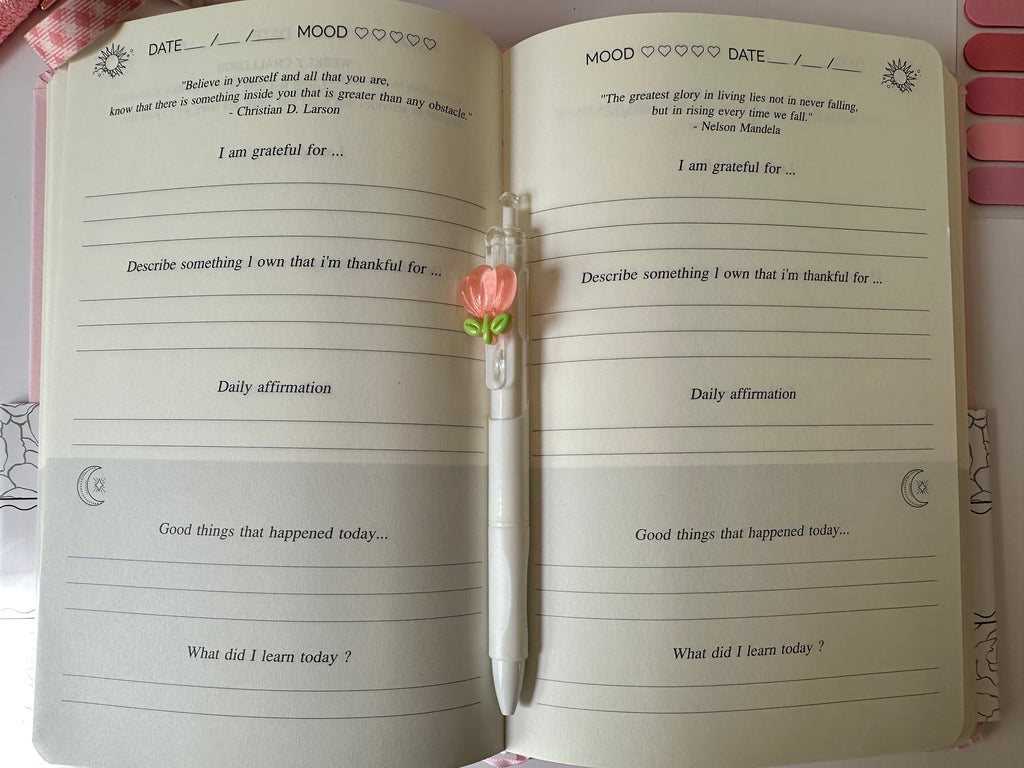 DATE__ /__ /___ MOOD ♡♡♡♡♡
"Believe in yourself and all that you are,
know that there is something inside you that is greater than any obstacle."
- Christian D. Larson
I am grateful for ...
Describe something I own that i'm thankful for ...
Daily affirmation
Good things that happened today...
What did I learn today ?
MOOD ♡♡♡♡♡ DATE__ /__ /___
"The greatest glory in living lies not in never falling,
but in rising every time we fall."
- Nelson Mandela
I am grateful for ...
Describe something I own that i'm thankful for ...
Daily affirmation
Good things that happened today...
What did I learn today ?